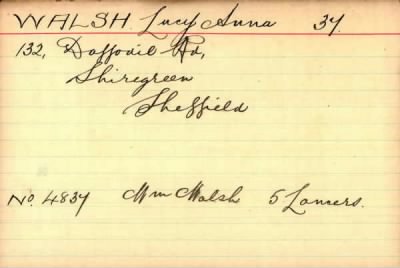 WALSH Lucy Anna 37.
132, Daffodil Rd,
Shiregreen
Sheffield
No. 4837 Wm Walsh 5 Lancers.